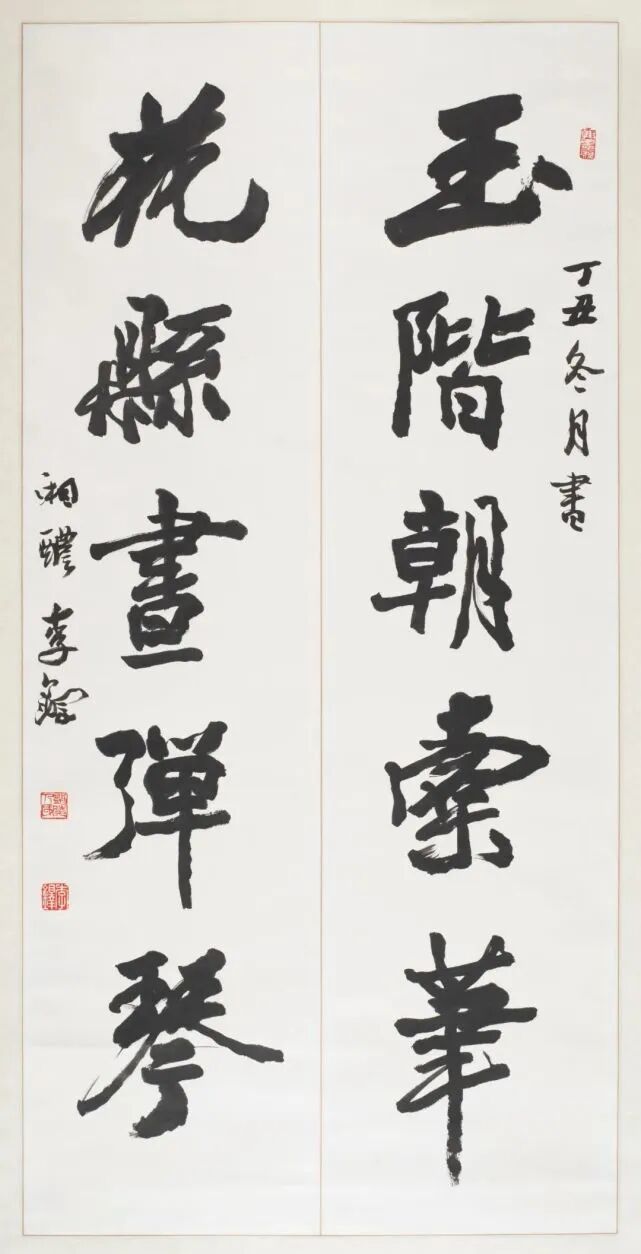 丁丑冬月書
玉階朝索筆
花縣晝彈琴
湘醴李鐸
李鐸